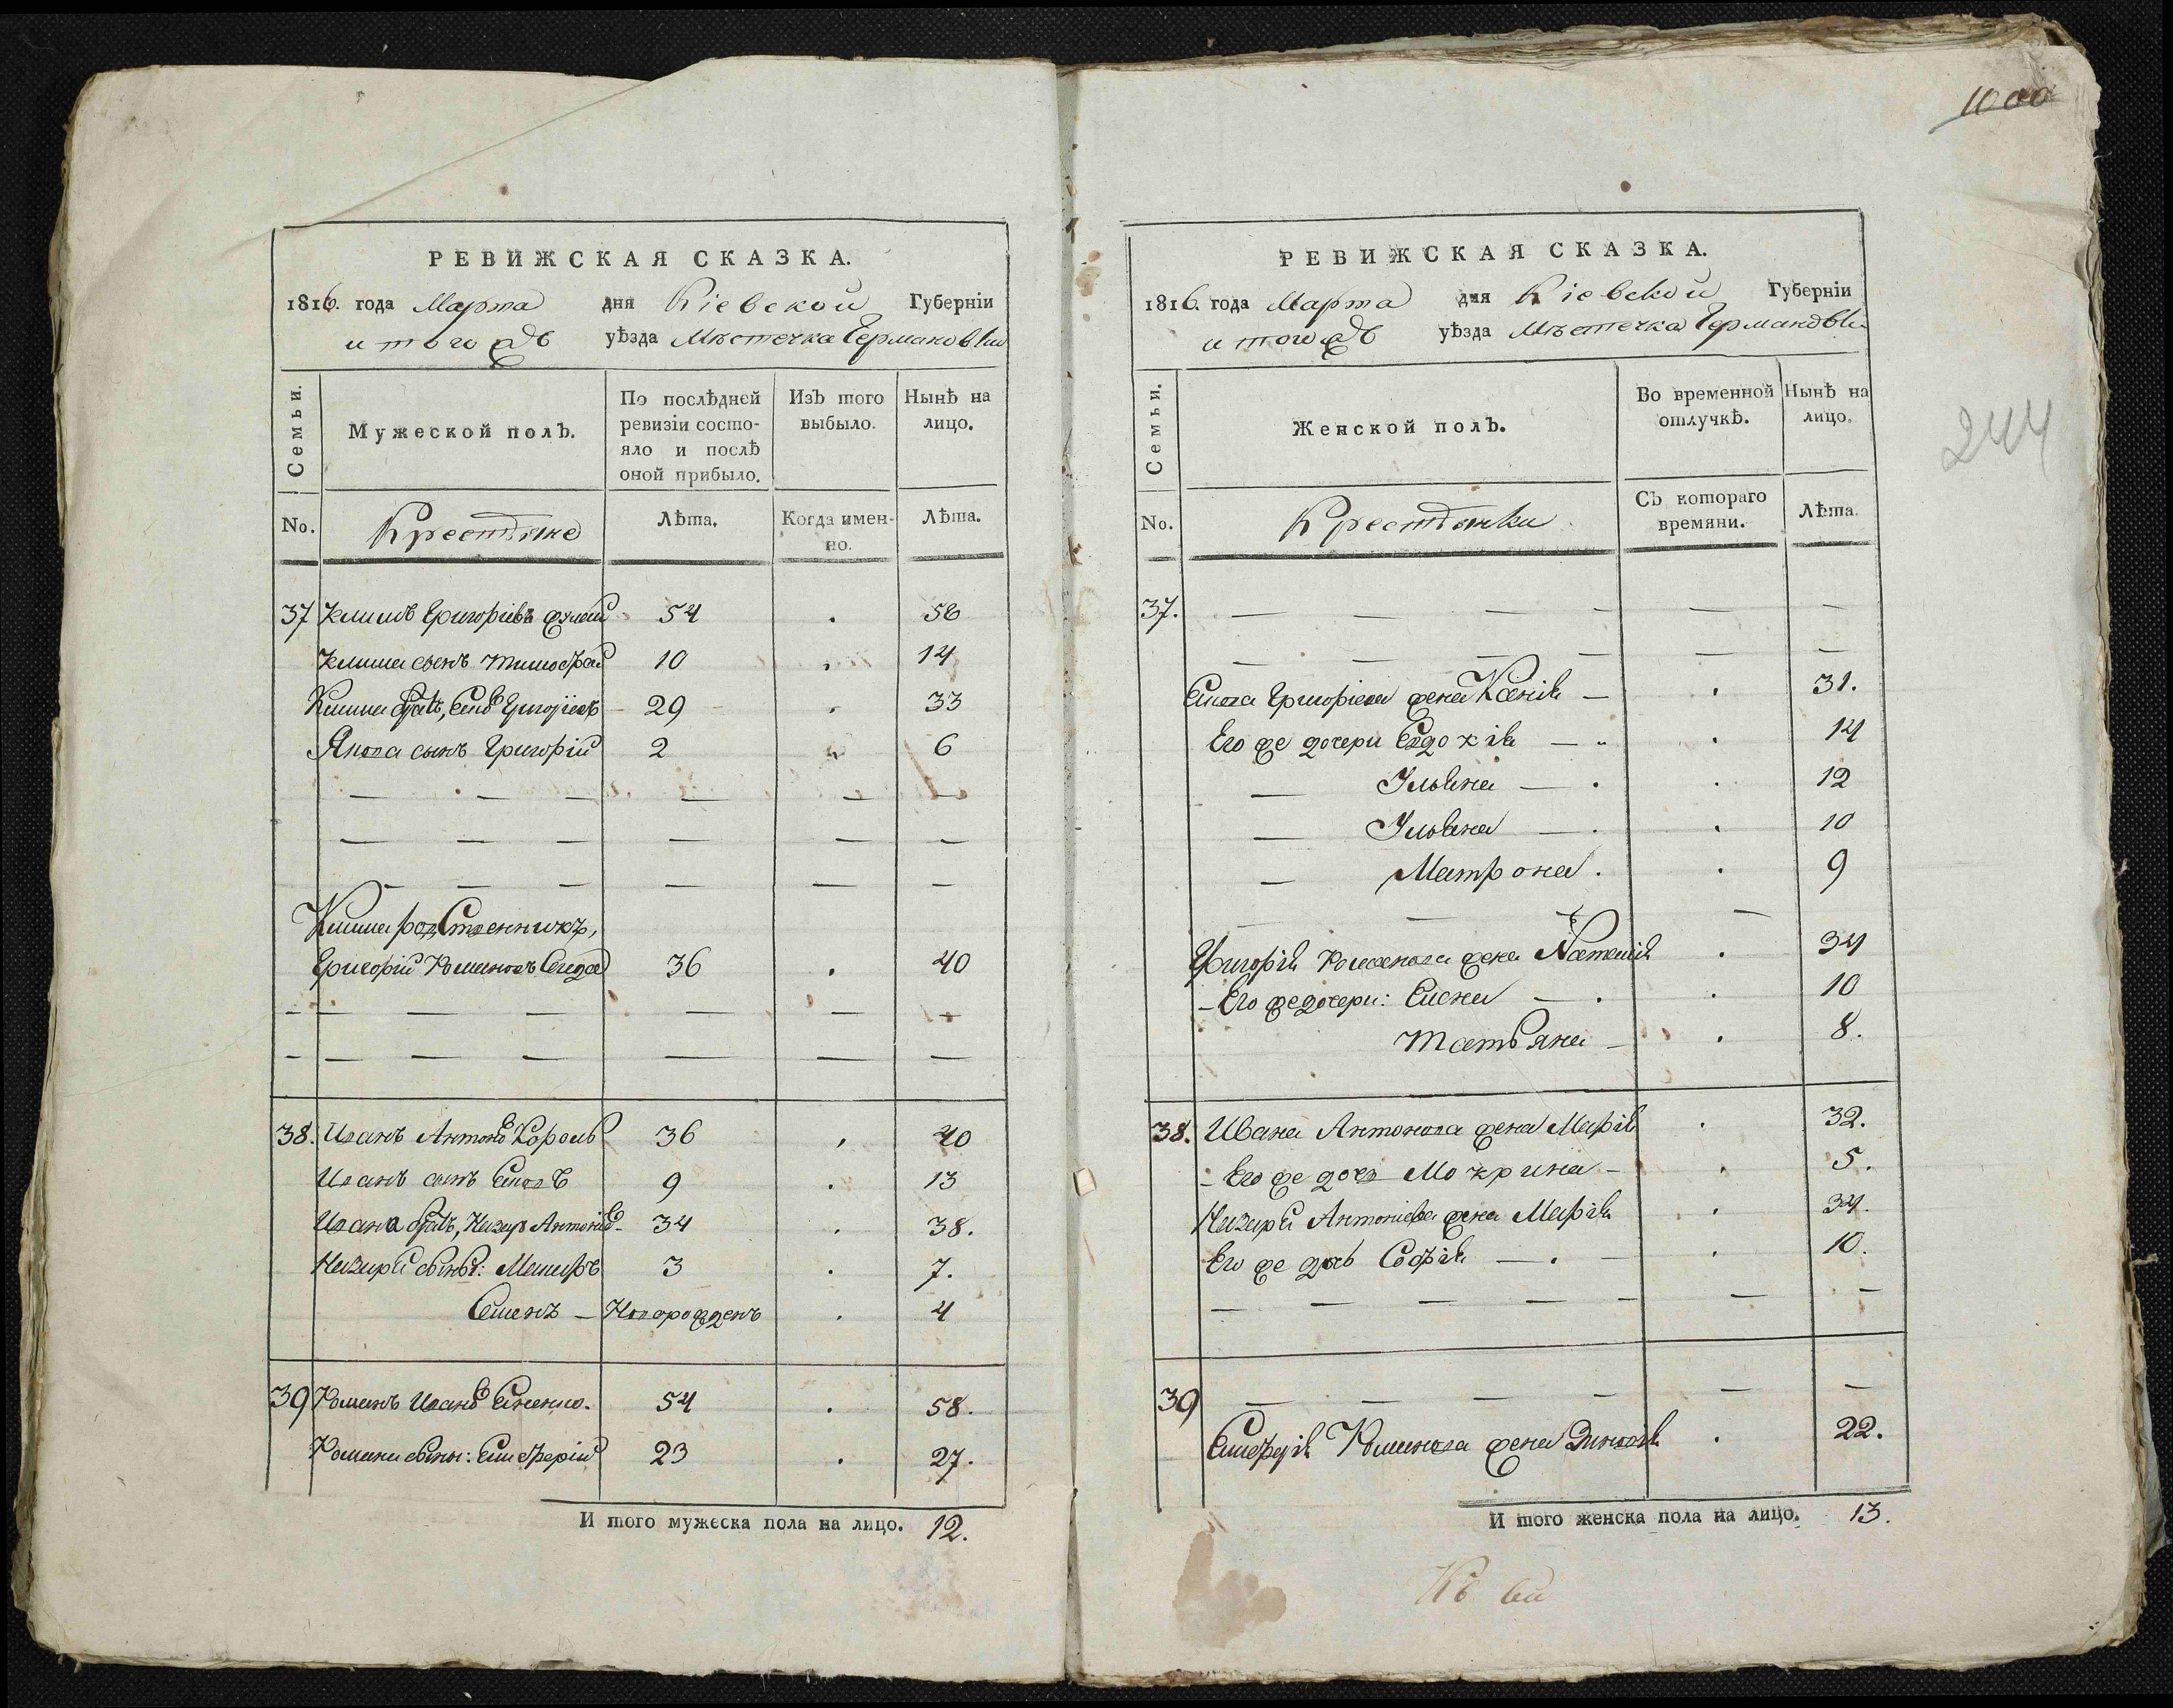 РЕВИЖСКАЯ СКАЗКА.
1816. года Марта дня Кіевской Губерніи
и того ждъ уѣзда Мѣстечка Германовки
Семьи. Мужеской полъ. По послѣдней ревизіи состояло и послѣ оной прибыло. Изъ того выбыло. Нынѣ на лицо.
No. Крестьяне Лѣта. Когда именно. Лѣта.
37 Климъ Григоріевъ 54 . 58
Клима сынъ Тимофей 10 . 14
Клима братъ, Григорьевъ 29 . 33
Якова сынъ Григорій 2 6
— — — — — —
— — — — — —
— — — — — —
Клима родственникъ,
Григорій Романовъ 36 . 40
— — — — — — —
— — — — — — —
38. Иванъ Антоновъ Король 36 . 40
Иванъ сынъ 9 . 13
Ивана братъ, Назаръ Антоновъ 34 . 38.
Назарія сыны: 3 . 7.
Семенъ — Новорожденъ . 4
39 Романъ Ивановъ 54 . 58.
Романа сыны: Елиферій 23 . 27.
И того мужеска пола на лицо. 12.
1000
РЕВИЖСКАЯ СКАЗКА.
1816. года Марта дня Кіевской Губерніи
и того ждъ уѣзда Мѣстечка Германовки
244
Семьи. Женской полъ. Во временной отлучкѣ. Нынѣ на лицо.
No. Крестьянки Съ котораго времяни. Лѣта.
37. — — — — — —
— — — — — —
Григоріева жена Ксенія — . 31.
Его же дочери Евдокія — . 14
— Ульяна — . . 12
— Ульяна — . . 10
— Матрона . . 9
— — —
Григорія Романова жена Наталія . 34
— Его же дочери: Елена — . . 10
Татьяна — . 8.
38. Ивана Антонова жена Марія . 32.
- Его же дочь Мокрина — . 5.
Назарія Антоніева жена Марія . 34.
Его же дочь Софія — . — . 10.
— — — — — — —
39 — — — — — —
Елиферія Романова жена Зиновія . 22.
И того женска пола на лицо. 13.